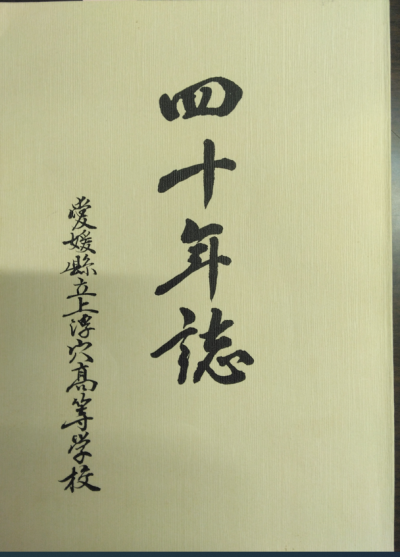 四十年誌
愛媛縣立上浮穴高等学校